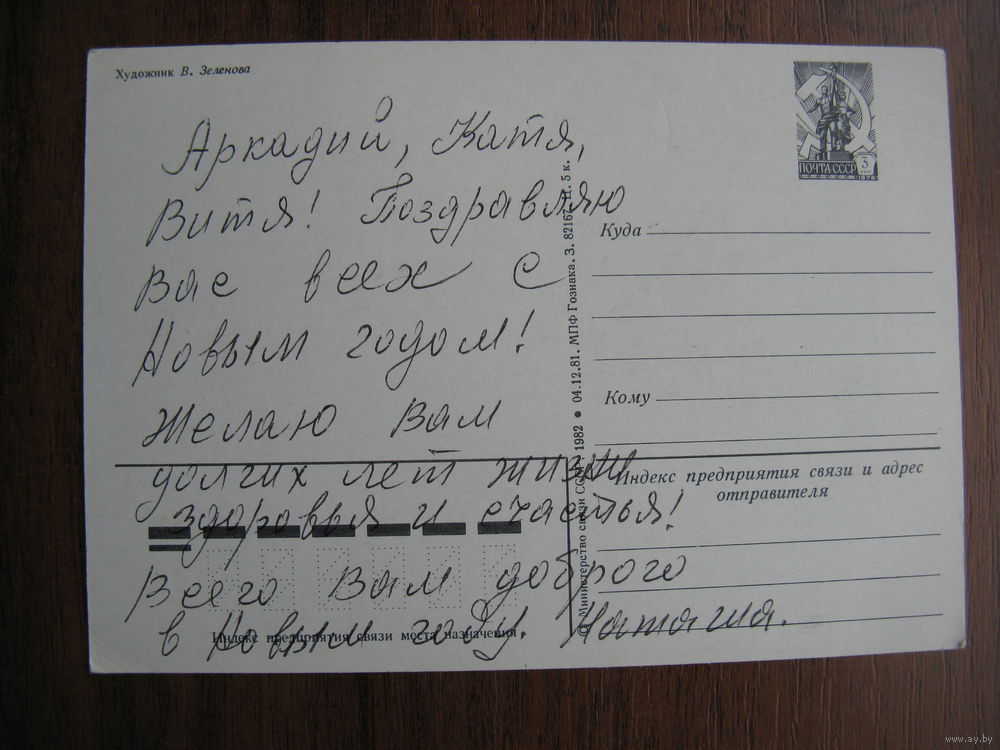 Художник В. Зеленова
ПОЧТА СССР
3
КОП
1976
Аркадий, Катя,
Витя! Поздравляю
Вас всех с
Новым годом!
Желаю Вам
долгих лет жизни
здоровья и счастья!
Всего Вам доброго
в Новым году. Наташа.
Куда
Кому
Индекс предприятия связи и адрес
отправителя
Индекс предприятия связи места назначения
© Министерство связи СССР. 1982 • 04.12.81. МПФ Гознака. З. 82167. Ц. 5 к.
www.ay.by